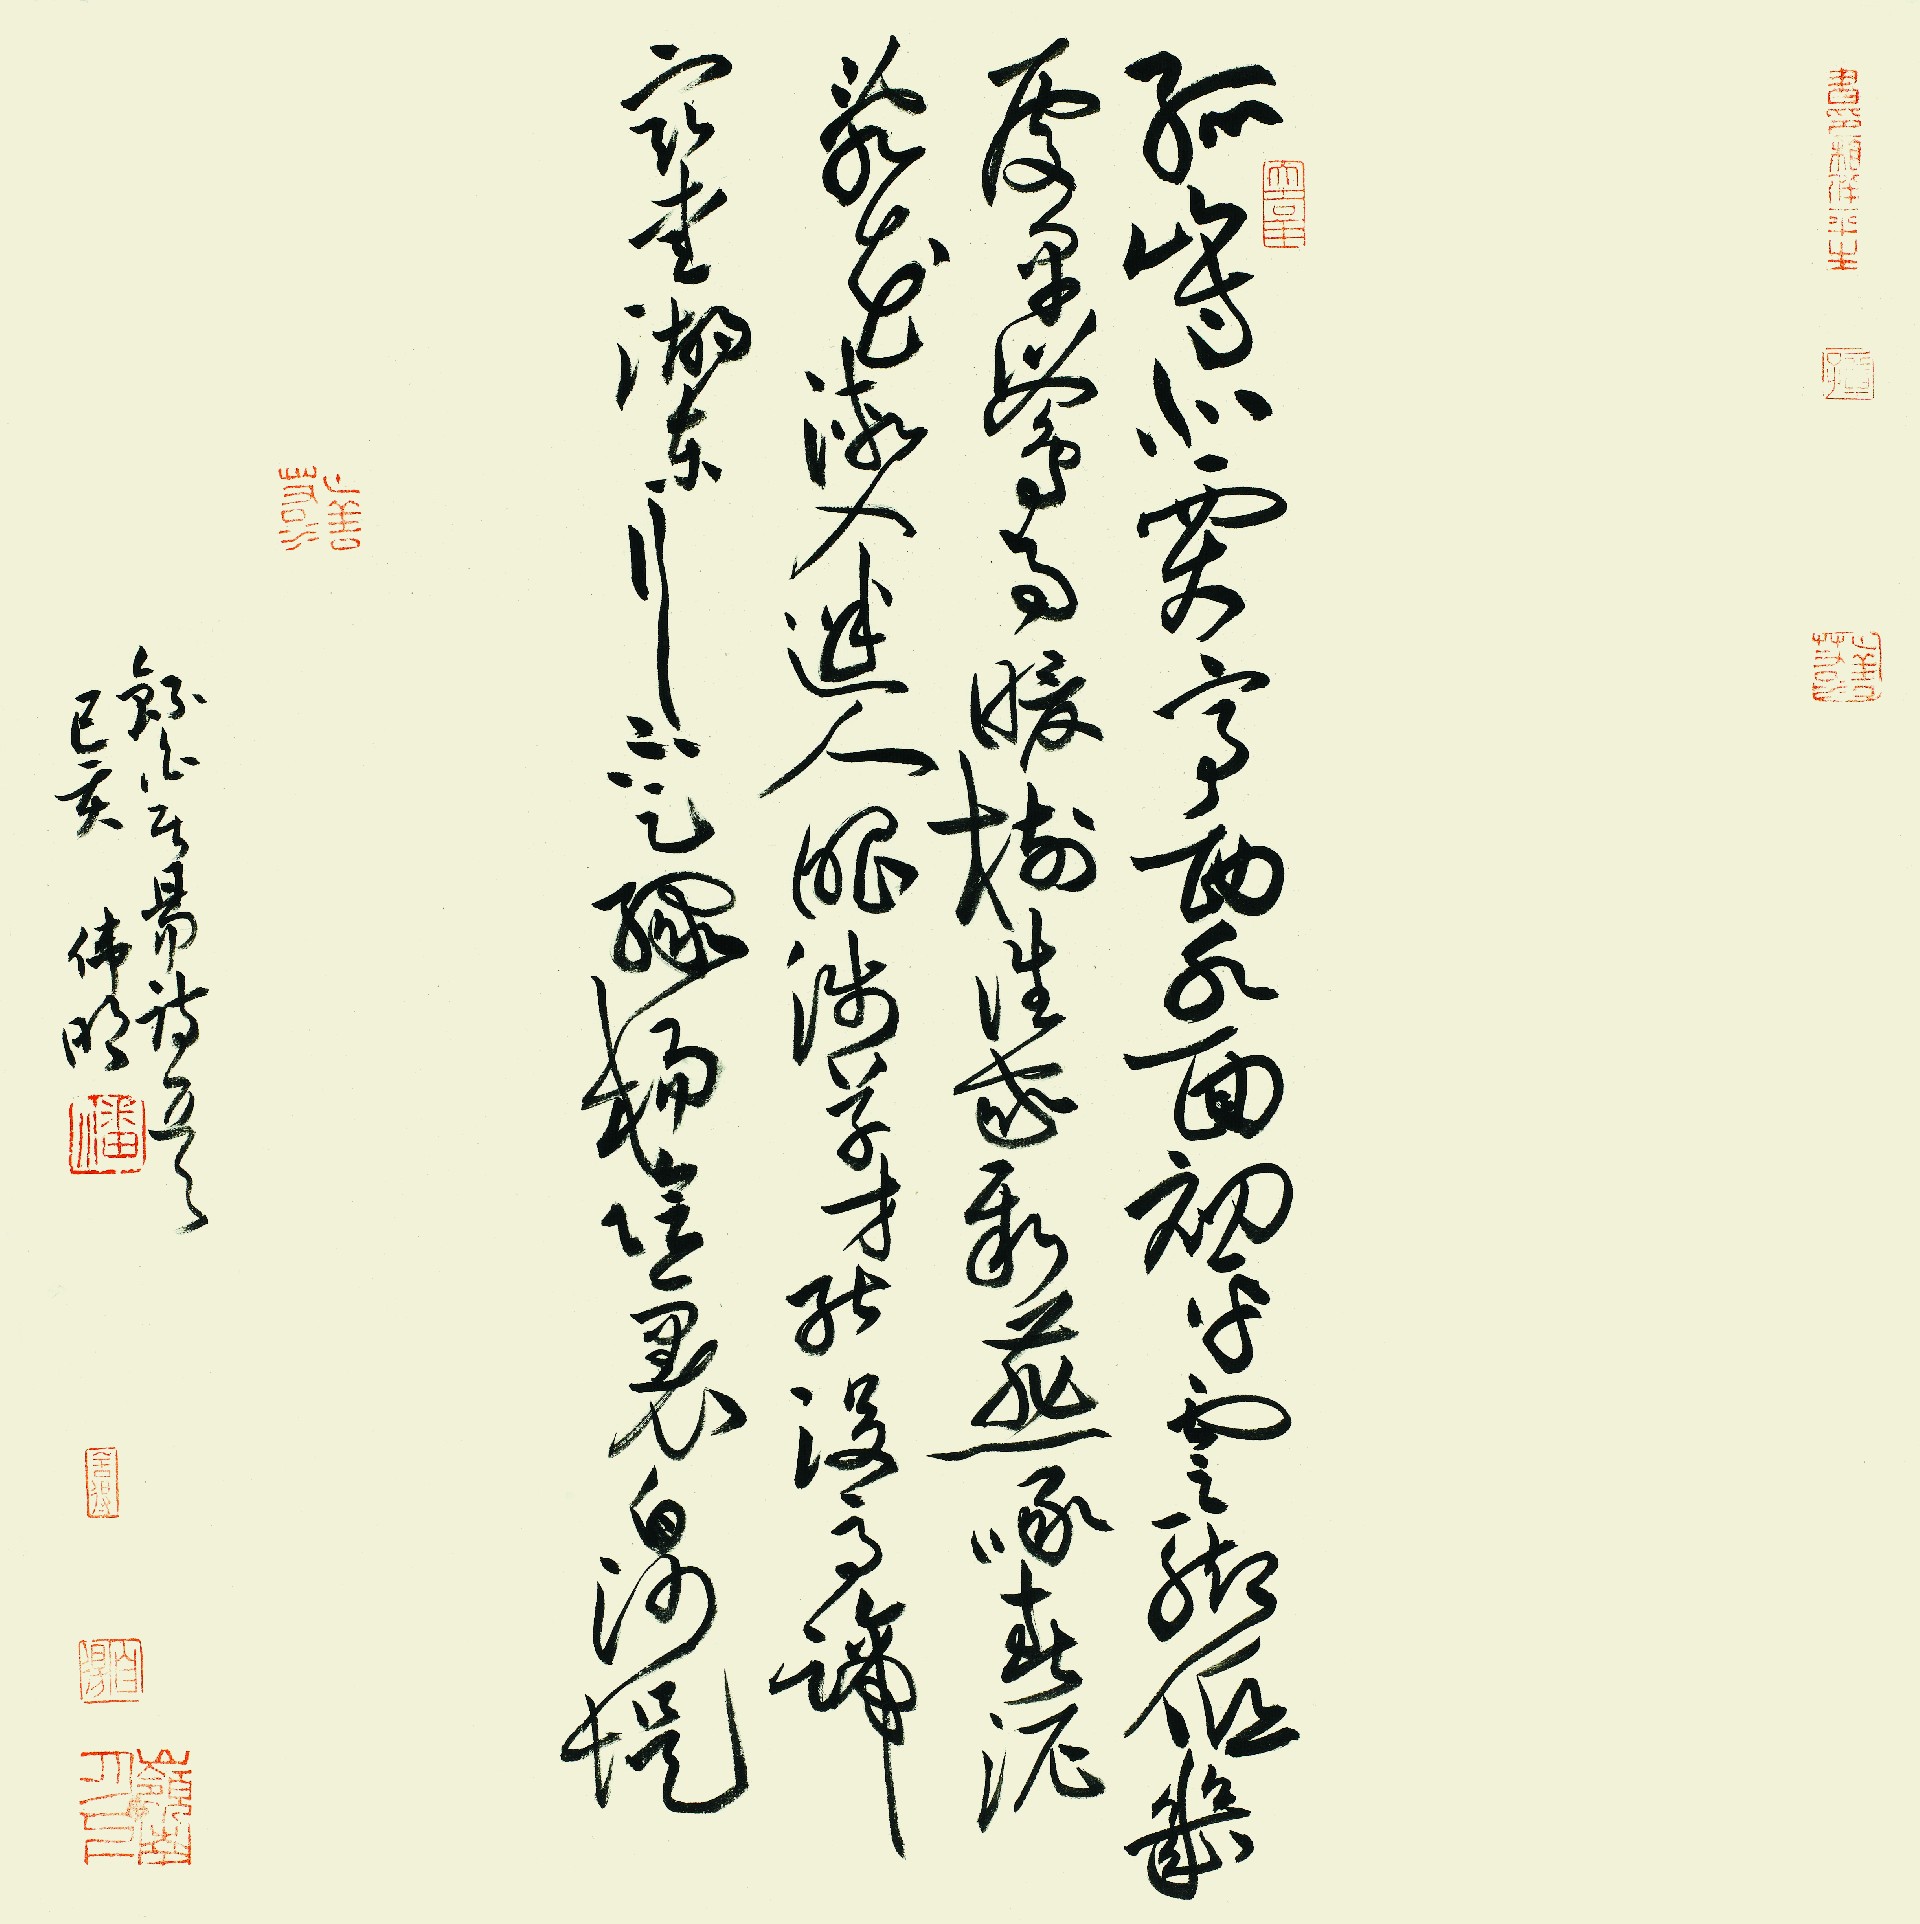 孤山寺北賈亭西水面初平雲腳低幾
處早鶯爭暖樹誰家新燕啄春泥
亂花漸欲迷人眼淺草才能沒馬蹄
最愛湖東行不足綠楊陰裏白沙堤
錄白居易詩
己亥 偉明
潘